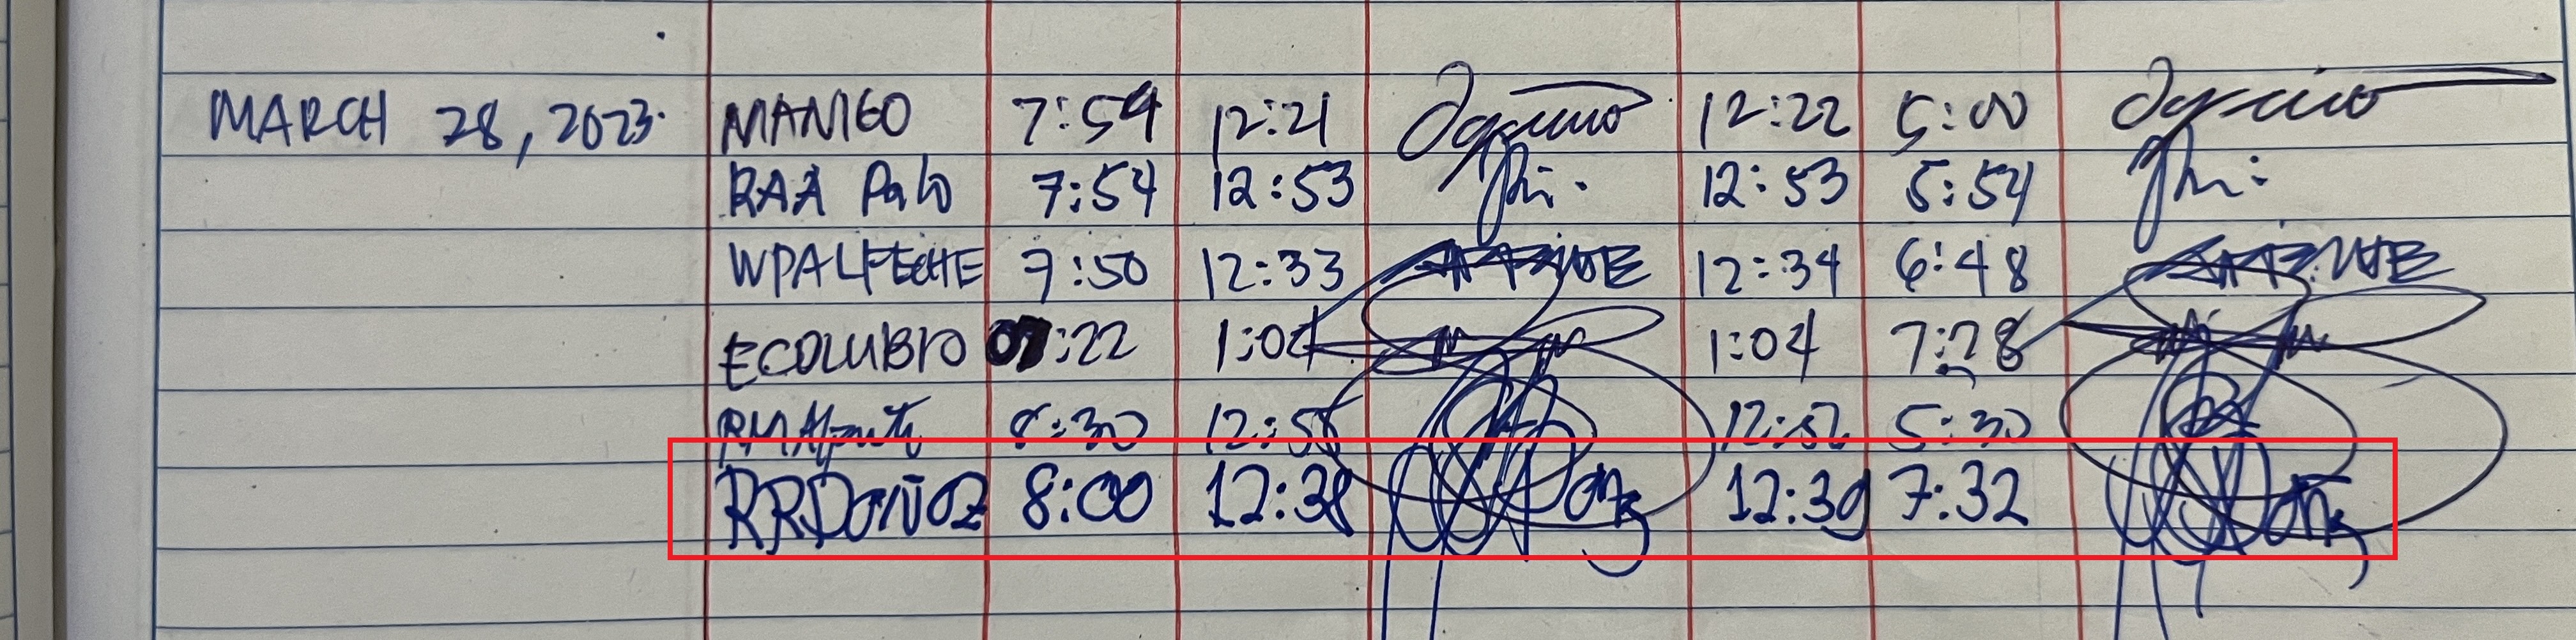 MARCH 28, 2023. MANIGO 7:54 12:21 12:22 5:00
RAA Palo 7:54 12:53 12:53 5:54
WPALFECHE 7:50 12:33 12:34 6:48
ECOLUBIO 07:22 1:04 1:04 7:28
8:30 12:52 5:30
RRDOÑOZ 8:00 12:38 12:39 7:32